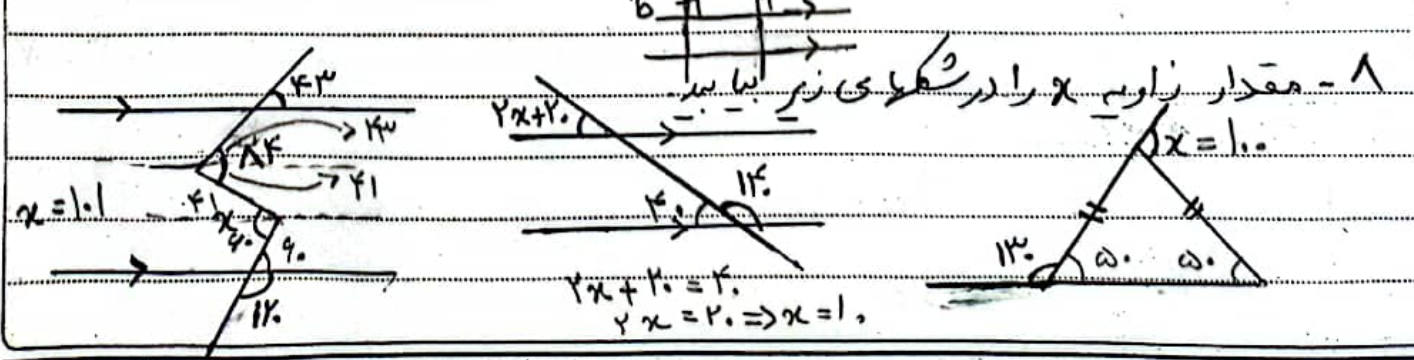 b
۸ - مقدار زاویه x را در شکلهای زیر بیابید.
x = ۱۰۰
۱۳۰
۵۰
۵۰
۲x+۲۰
۱۴۰
۴۰
۲x + ۲۰ = ۴۰
۲x = ۲۰ => x = ۱۰
۴۳
۴۳
۸۴
۴۱
۴۱
x
۶۰
۶۰
۱۲۰
x = ۱۰۱